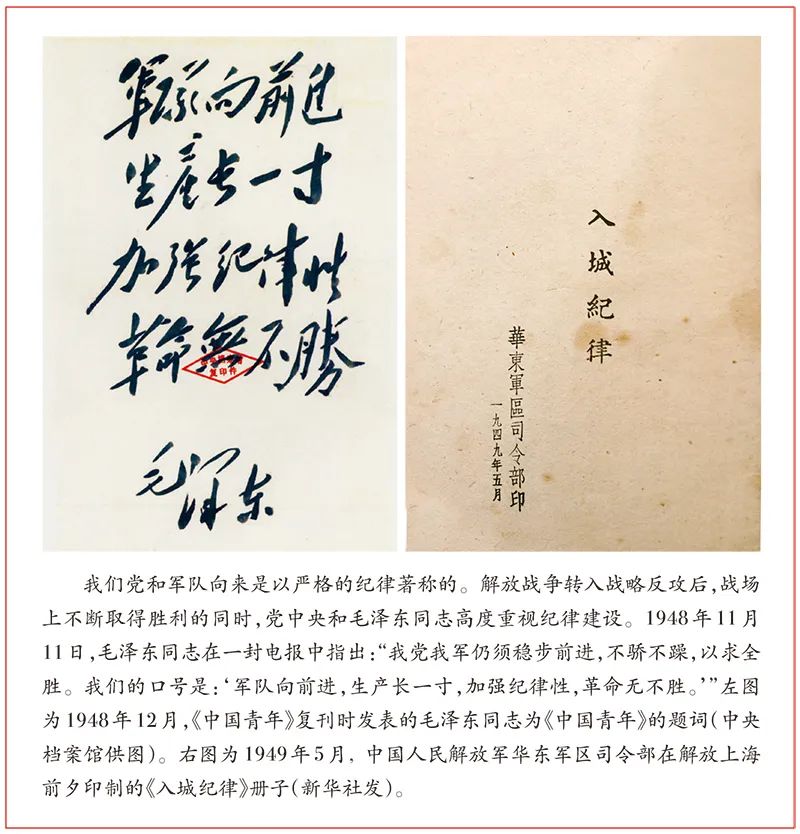 軍队向前进
生產长一寸
加强纪律性
革命無不勝
复印件
毛泽东
入城紀律
華東軍區司令部印
一九四九年五月
我们党和军队向来是以严格的纪律著称的。解放战争转入战略反攻后,战场
上不断取得胜利的同时,党中央和毛泽东同志高度重视纪律建设。1948年11月
11日,毛泽东同志在一封电报中指出:“我党我军仍须稳步前进,不骄不躁,以求全
胜。我们的口号是:‘军队向前进,生产长一寸,加强纪律性,革命无不胜。’”左图
为1948年12月,《中国青年》复刊时发表的毛泽东同志为《中国青年》的题词(中央
档案馆供图)。右图为1949年5月,中国人民解放军华东军区司令部在解放上海
前夕印制的《入城纪律》册子(新华社发)。